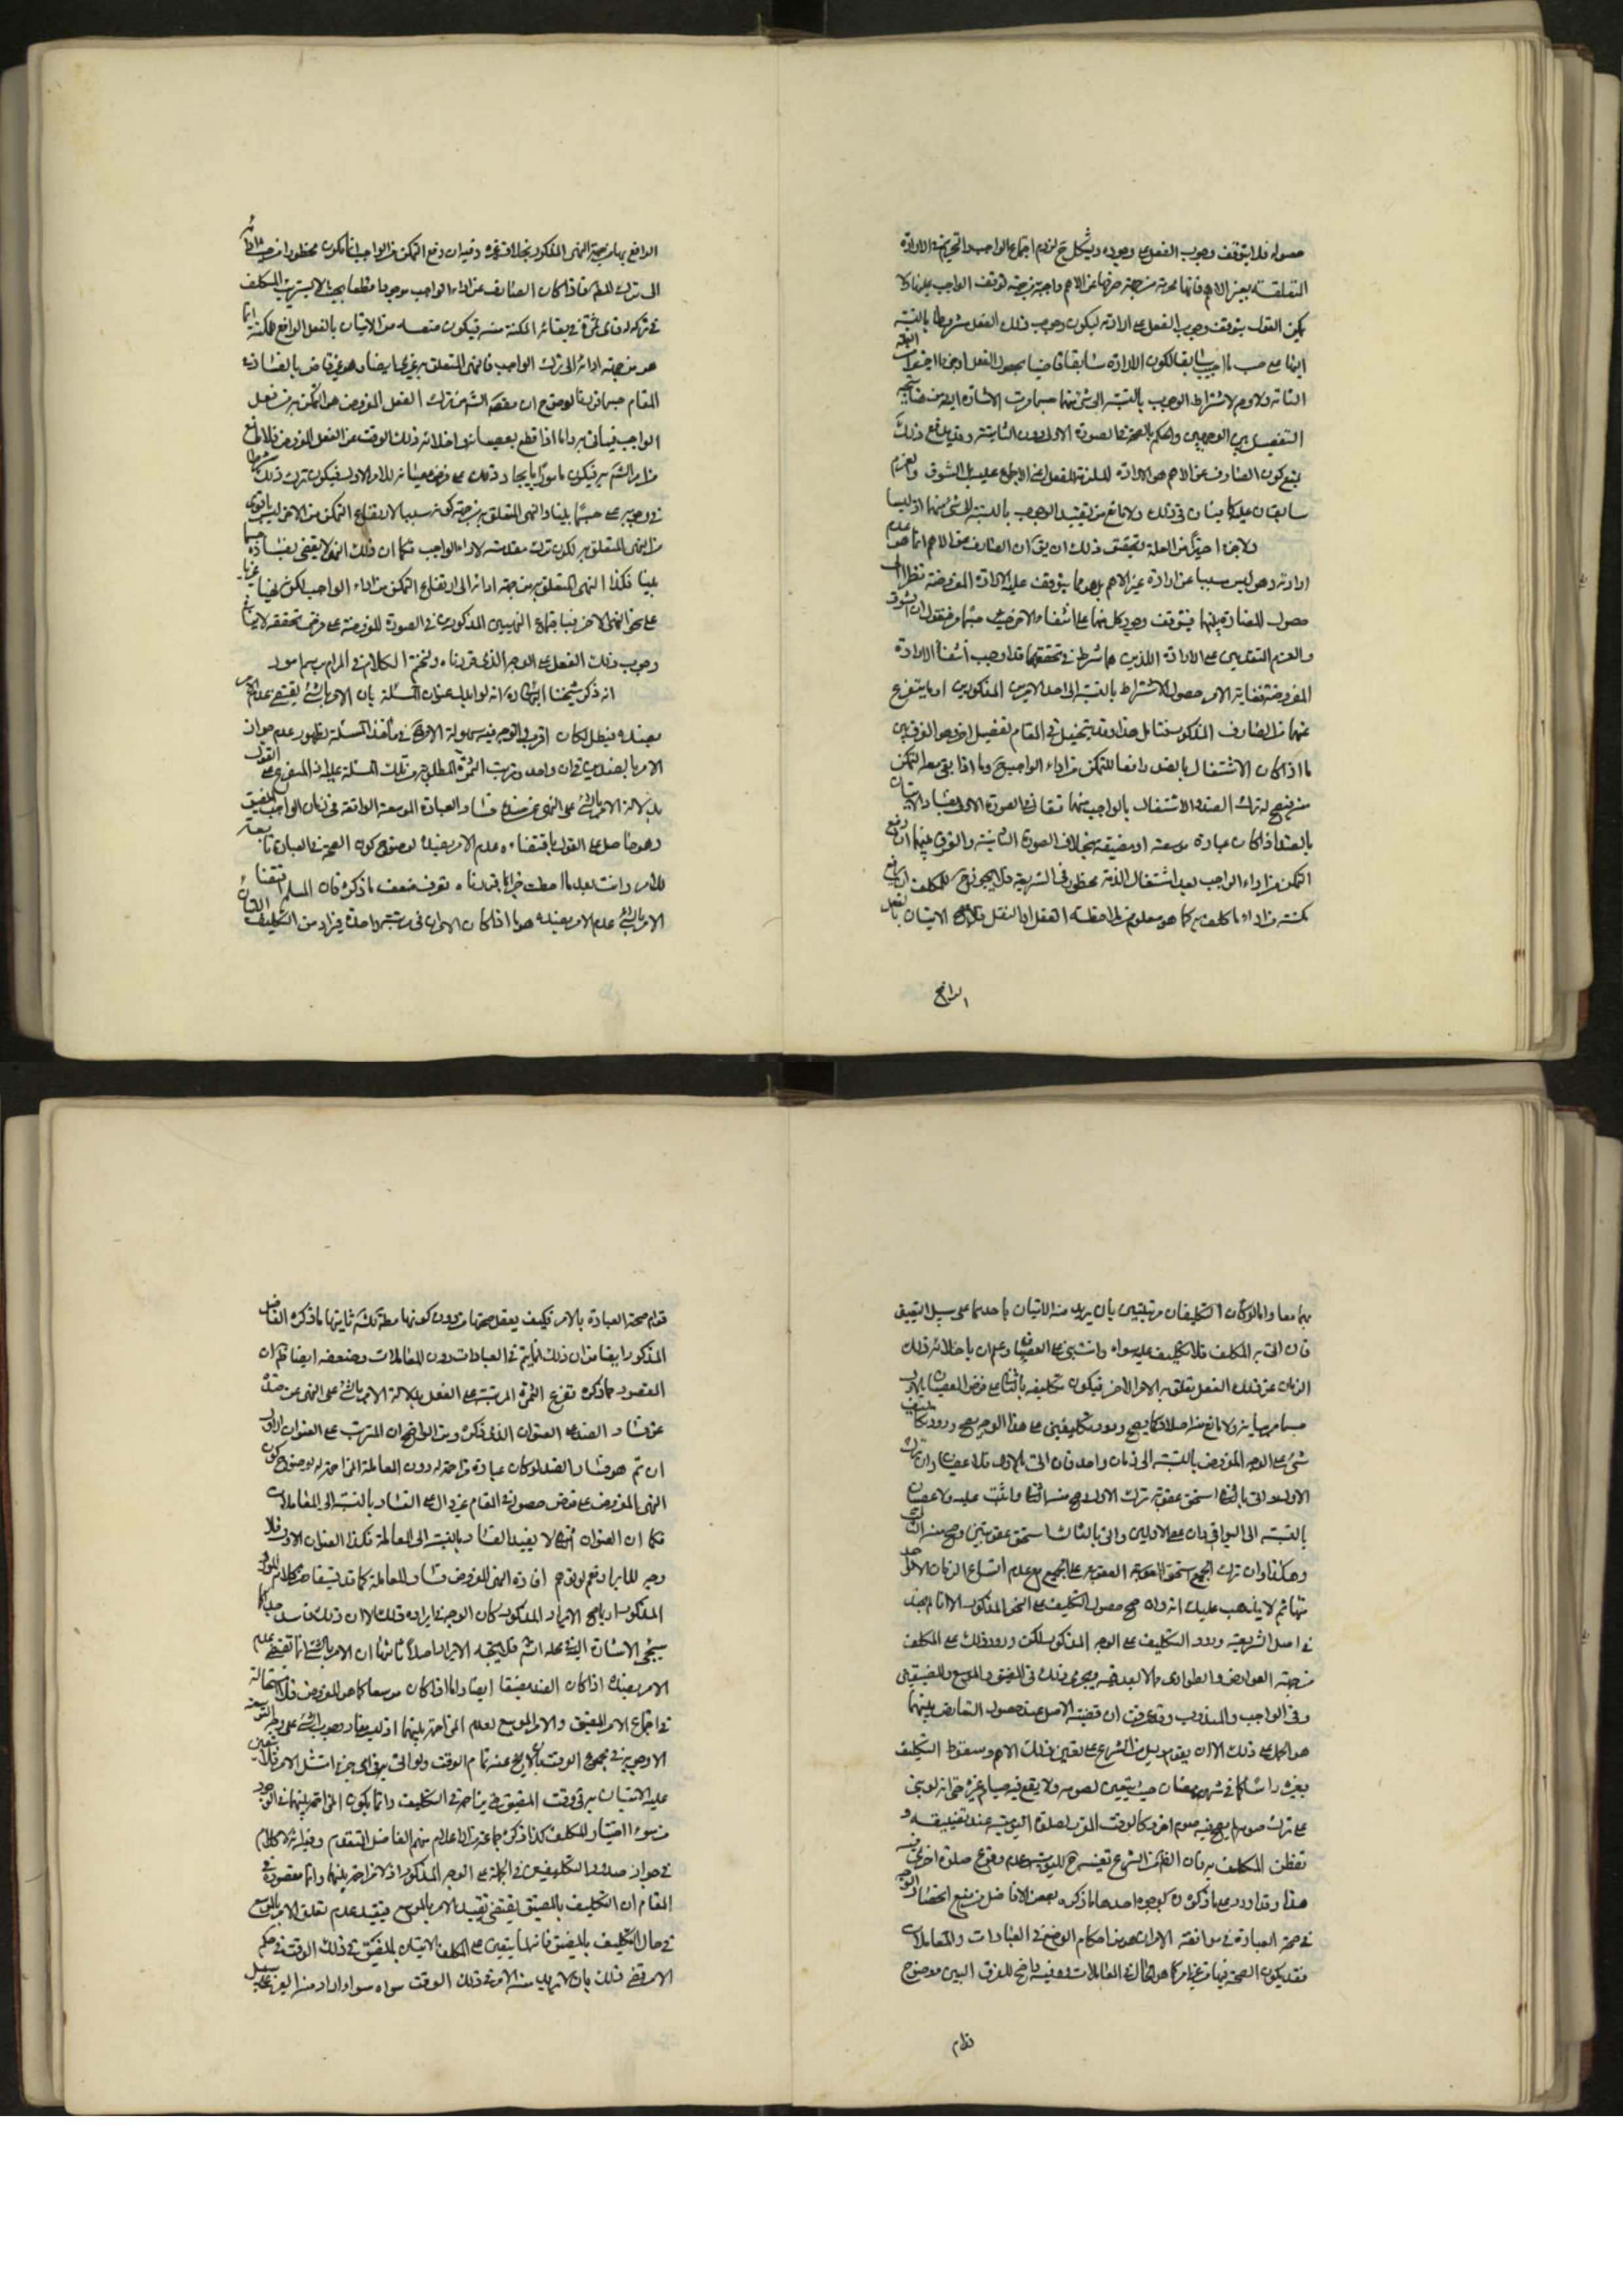 حصوله فلا يتوقف وجوب الفعل على وجوده ويشكل ح لزوم اجتماع الواجب والتحريم في الارادة
المتعلقة بغير الاهم فانها محرمة من جهة صرفها عن الاهم واجبة من جهة توقف الواجب عليها ولا
يمكن القول بتوقف وجوب الفعل على ارادته ليكون وجوب ذلك الفعل مشروطا بالنسبة
اليها على حسب ما اجيب سابقا لكون الارادة سابقا قاضيا بحصول الفعل
الثانية ولا وجه لاشتراط الوجوب بالنسبة الى شيء منها حسبما مرت الاشارة اليه
التفصيل بين الوجهين والحكم بالصحة في الصورة الاولى دون الثانية وقد يدفع ذلك
بمنع كون الصارف عن الاهم هو الارادة الملزمة للفعل اعني الاجماع عليه بل الشوق والعزم
سابقان عليه كافيان في ذلك ولا مانع من تقييد الوجوب بالنسبة الى شيء منهما اذ ليسا
ولا جزءا اخيرا من العلة وتحقيق ذلك ان يق ان الصارف عن الاهم انما هو عدم
ارادته وهو ليس سببا عن ارادة غير الاهم بل هو مما يتوقف عليه الارادة المفروضة نظرا الى
حصول المضادة بينهما فيتوقف وجود كل منهما على انتفاء الاخر
والعزم المتقدمين على الارادة اللذين هما شرط في تحققها قد اوجب انتفاء الارادة
المفروضة فغاية الامر حصول الاشتراط بالنسبة الى احد الامرين المذكورين او ما يتفرع
عنهما من الصارف المذكور فتامل هذا وقد يتخيل في المقام تفصيل اخر وهو الفرق بين
ما اذا كان الاشتغال بالضد رافعا للتمكن من اداء الواجب ح وما اذا بقي معه التمكن
منه فيصح له ترك الضد والاشتغال بالواجب
بالضد اذا كان عبادة موسعة او مضيقة بخلاف الصورة الثانية والفرق بينهما ان رفع
التمكن من اداء الواجب بعد اشتغال الذمة محظور في الشريعة فلا يجوز ح للمكلف ان يرفع
مكنته من اداء ما كلف به كما هو معلوم من ملاحظة العقل او النقل فلا يصح الاتيان بالفعل
الرافع
الرافع لها من جهة النهي المذكور بخلاف غيره وفيه ان دفع التمكن من الواجب انما يكون محظورا من حيث
الى ترك المط فاذا كان الصارف عن اداء الواجب موجودا قطعا بحيث لا يستريب المكلف
في تركه له فاي ثمرة في بقاء المكنة منه فيكون منعه من الاتيان بالفعل الرافع للمكنة انما
هو من جهة ادائه الى ترك الواجب فالنهي المتعلق به غيري ايضا وهو غير قاض بالفساد في
المقام حسبما قررنا لوضوح ان مقصود الشرع ترك الفعل المفروض هو التمكن به من فعل
الواجب فيأتي به واما اذا قطع بعصيانه واخلائه ذلك الوقت عن الفعل المفروض فلا مانع
من امر الشرع به فيكون مامورا بايجاد ذلك على فرض عصيانه للامر الاول فيكون ترك ذلك شرطا
في وجوبه على حسب ما بينا والنهي المتعلق به من جهة كونه سببا لارتفاع التمكن من الاخر ليس باقوى
من النهي المتعلق به لكون تركه مقدمة لاداء الواجب فكما ان ذلك النهي لا يقضي بفساده حسبما
بينا فكذا النهي المتعلق به من جهة ادائه الى ارتفاع التمكن من اداء الواجب
على نحو النهي الاخر فباجتماع النهيين المذكورين في الصورة المفروضة على فرض تحققه لا ينافي
وجوب ذلك الفعل على الوجه الذي قررناه ونختم الكلام في المرام برسم امور
انه ذكر شيخنا البهائي ره انه لو ابدل عنوان المسئلة بان الامر بالشيء يقتضي عدم الامر
بضده فيبطل لكان اقرب في التوجيه مأخذ المسئلة لظهور عدم جواز
الامر بالضدين في ان واحد وترتب الثمرة المطلوبة من تلك المسئلة عليه اذ المتفرع على القول
بدلالة الامر بالشيء على النهي عن ضده فساد العبادة الموسعة الواقعة في زمان الواجب المضيق
وهو حاصل على القول باقتضاءه عدم الامر بضده لوضوح كون الصحة في العبادة تابعة
للامر وانت بعد ما احطت خبرا بما قررناه تعرف ضعف ما ذكره فان المسلم اقتضاء
الامر بالشيء عدم الامر بضده هو ما اذا كان الامران في مرتبة واحدة فيراد من التكليف
بهما معا واما لو كان التكليفان مرتبتين بان يريد منه الاتيان باحدهما على سبيل التعيين
فان اتى به المكلف فلا تكليف عليه سواه وان بنى على العصيان وعلم ان باخلائه ذلك
الزمان عن ذلك الفعل تعلق به الامر الاخر فيكون تكليفه بالثاني على فرض العصيان بالاول
حسبما مر بيانه ولا مانع منه اصلا فكما يصح ورود تكليفين على هذا الوجه يصح ورود تكاليف
شتى على الوجه المفروض بالنسبة الى زمان واحد فان اتى بالاول فلا عصيان وان ترك
الاول واتى بالثاني استحق عقوبة ترك الاول وصح منه الثاني واثيب عليه ولا عصيان
بالنسبة الى البواقي وان عصى الاولين واتى بالثالث استحق عقوبتين وصح منه الثالث
وهكذا وان ترك الجميع استحق العقوبة على الجميع مع عدم اتساع الزمان الا لواحد
منها ثم لا يذهب عليك انه وان صح حصول التكليف على النحو المذكور الا انا لم نجد
في اصل الشريعة ورود التكليف على الوجه المذكور لكن ورود ذلك على المكلف
من جهة العوارض والطواري مما لا بعد فيه ويجري ذلك في المضيق والموسع والمضيقين
وفي الواجب والمندوب وقد عرفت ان قضية الاصل عند حصول التعارض بينهما
هو الحمل على ذلك الا ان يقوم دليل من الشرع على تعيين ذلك الاهم وسقوط التكليف
بغيره راسا كما في شهر رمضان حيث يتعين لصومه ولا يقع فيه صيام غيره حتى انه لو بنى
على ترك صومه لم يصح فيه صوم اخر وكالوقت المقرر لصلوة اليومية عند تضييقه و
تفطن المكلف به فان الظ من الشرع تعينه ح لليومية وعدم وقوع صلوة اخرى فيه
هذا وقد اورد على ما ذكره ره بوجوه احدها ما ذكره بعض الافاضل من منع
في صحة العبادة في موافقة الامر
فقد يكون الصحة فيها من غير امر كما هو الحال في المعاملات وفيه واضح للفرق البين بوضوح
قوام
قوام صحة العبادة بالامر فكيف يعقل صحتها من دون كونها مطلوبة ثانيها ما ذكره الفاضل
المذكور ايضا من ان ذلك انما يتم في العبادات دون المعاملات وضعفه ايضا ظ فان
المقصود مما ذكره تفرع الثمرة المترتبة على الفعل بدلالة الامر بالشيء على النهي عن ضده
عن فساد الضد على العنوان الذي ذكره ومن الواضح ان المترتب على العنوان الاول
ان تم هو فساد الضد لو كان عبادة مزاحمة له دون المعاملة المزاحمة له لوضوح كون
النهي المفروض على فرض حصوله في المقام غير دال على الفساد بالنسبة الى المعاملات
فكما ان العنوان لا يفيد الفساد بالنسبة الى المعاملة فكذا العنوان الاول فلا
وجه للايراد نعم لو توهم افادة النهي المفروض فساد المعاملة كما قد يستفاد من كلام المورد
المذكور كان الوجه في ايراده ذلك الا ان ذلك فاسد جدا كما
سيجيء الاشارة اليه في محله انشاء الله فلا يتجه الايراد اصلا ثالثها ان الامر بالشيء انما يقتضي عدم
الامر بضده اذا كان الضد مضيقا ايضا واما اذا كان موسعا كما هو المفروض فلا استحالة
في اجتماع الامر المضيق والامر الموسع لعدم المزاحمة بينهما اذ ليس مفاد وجوب الشيء على وجه التوسعة
الا وجوبه في مجموع الوقت بان لا يخرج عنه تمام الوقت ولو اتى به في اي جزء امتثل الامر فلا يتعين
عليه الاتيان به في وقت المضيق حتى يزاحمه في التكليف وانما يكون المزاحمة بينهما في الوجود
من سوء اختيار المكلف كذا ذكره جماعة من الاعلام منهم الفاضل المتقدم وفيه انه لا كلام
في جواز صدور التكليفين في الجملة على الوجه المذكور اذ لا مزاحمة بينهما وانما مقصوده في
المقام ان التكليف بالمضيق يقتضي تقييد الامر بالموسع فيقيد عدم تعلق الامر بالموسع
في حال التكليف بالمضيق فانه لما يتعين على المكلف الاتيان بالمضيق في ذلك الوقت في حكم
الامر قضى ذلك بان لا يريد منه الامر في ذلك الوقت سواه سواء اراد منه الغير على سبيل